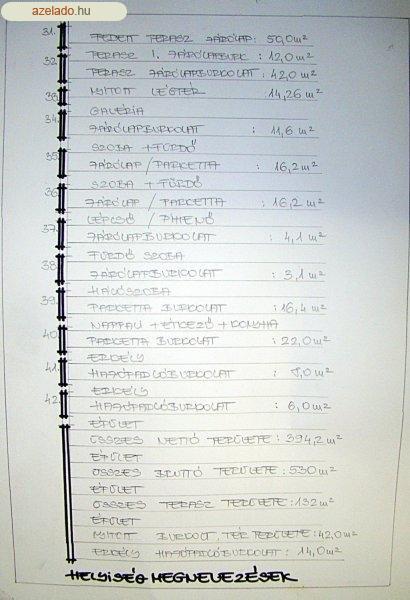 azelado.hu
31. FEDETT TERASZ JÁRÓLAP: 59,0 m²
32. TERASZ I. JÁRÓLAPBURK. : 12,0 m²
TERASZ JÁRÓLAPBURKOLAT : 42,0 m²
33. NYITOTT LÉGTÉR 14,26 m²
34. GALÉRIA
JÁRÓLAPBURKOLAT : 11,6 m²
35. SZOBA + FÜRDŐ
JÁRÓLAP / PARKETTA : 16,2 m²
SZOBA + FÜRDŐ
36. JÁRÓLAP / PARKETTA : 16,2 m²
37. LÉPCSŐ / PIHENŐ
JÁRÓLAPBURKOLAT : 4,1 m²
38. FÜRDŐ SZOBA
JÁRÓLAPBURKOLAT : 3,1 m²
39. HÁLÓSZOBA
PARKETTA BURKOLAT : 16,4 m²
40. NAPPALI + ÉTKEZŐ + KONYHA
PARKETTA BURKOLAT : 22,0 m²
41. ERKÉLY
HAJÓPADLÓBURKOLAT : m²
42. ERKÉLY
HAJÓPADLÓBURKOLAT : 6,0 m²
ÉPÜLET
ÖSSZES NETTÓ TERÜLETE : 394,2 m²
ÉPÜLET
ÖSSZES BRUTTÓ TERÜLETE : 530 m²
ÉPÜLET
ÖSSZES TERASZ TERÜLETE : 132 m²
ÉPÜLET
NYITOTT BURKOLT, TÉR TERÜLETE : 42,0 m²
ERKÉLY HAJÓPADLÓBURKOLAT : 14,0 m²
HELYISÉG MEGNEVEZÉSEK